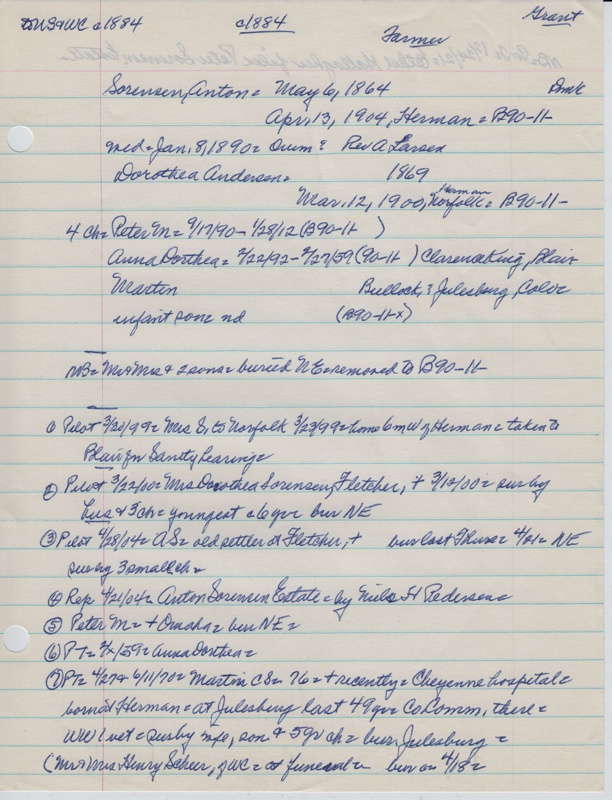 to US & WC c1884 c1884 Grant
Farmer
Sorensen, Anton = May 6, 1864 Dmk
Apr. 13, 1904, Herman = B90-11-
med = Jan. 8, 1890 = Orum & Rev A Larsen
Dorothea Andersen = 1869
Mar. 12, 1900, Herman Norfolk = B90-11-
4 ch = Peter M = 9/17/90 - 1/28/12 (B90-11- )
Anna Dorthea = 2/22/92 - 2/27/59 (90-11 ) Clarence King, Blair
Martin Bullock, & Julesburg, Colo =
infant son = nd (B90-11-x)
NB = Mr & Mrs & 2 sons = buried NE = removed to B90-11-
① Pilot 3/30/99 = Mrs S, to Norfolk 3/23/99 = home 6 m W of Herman = taken to
Blair for Sanity hearing =
② Pilot 3/22/00 = Mrs Dorothea Sorensen, Fletcher, + 3/12/00 = sur by
hus & 3 ch = youngest c 6 yr = bur NE
③ Pilot 4/28/04 = AS = old settler at Fletcher, + bur last Thurs = 4/21 = NE
sur by 3 small ch =
④ Rep 4/21/04 = Anton Sorensen Estate = by Niels H Pedersen =
⑤ Peter M = + Omaha = bur NE =
⑥ PT = /59 = Anna Dorthea =
⑦ PT = 4/27 & 6/11/70 = Martin CS = 76 = + recently = Cheyenne hospital =
born at Herman = at Julesburg last 49 yr = Co Comm, there =
WW I vet = sur by wife, son & 5 gr ch = bur, Julesburg =
(Mr & Mrs Henry Scheer, of WC = at funeral = bur on 4/18 =